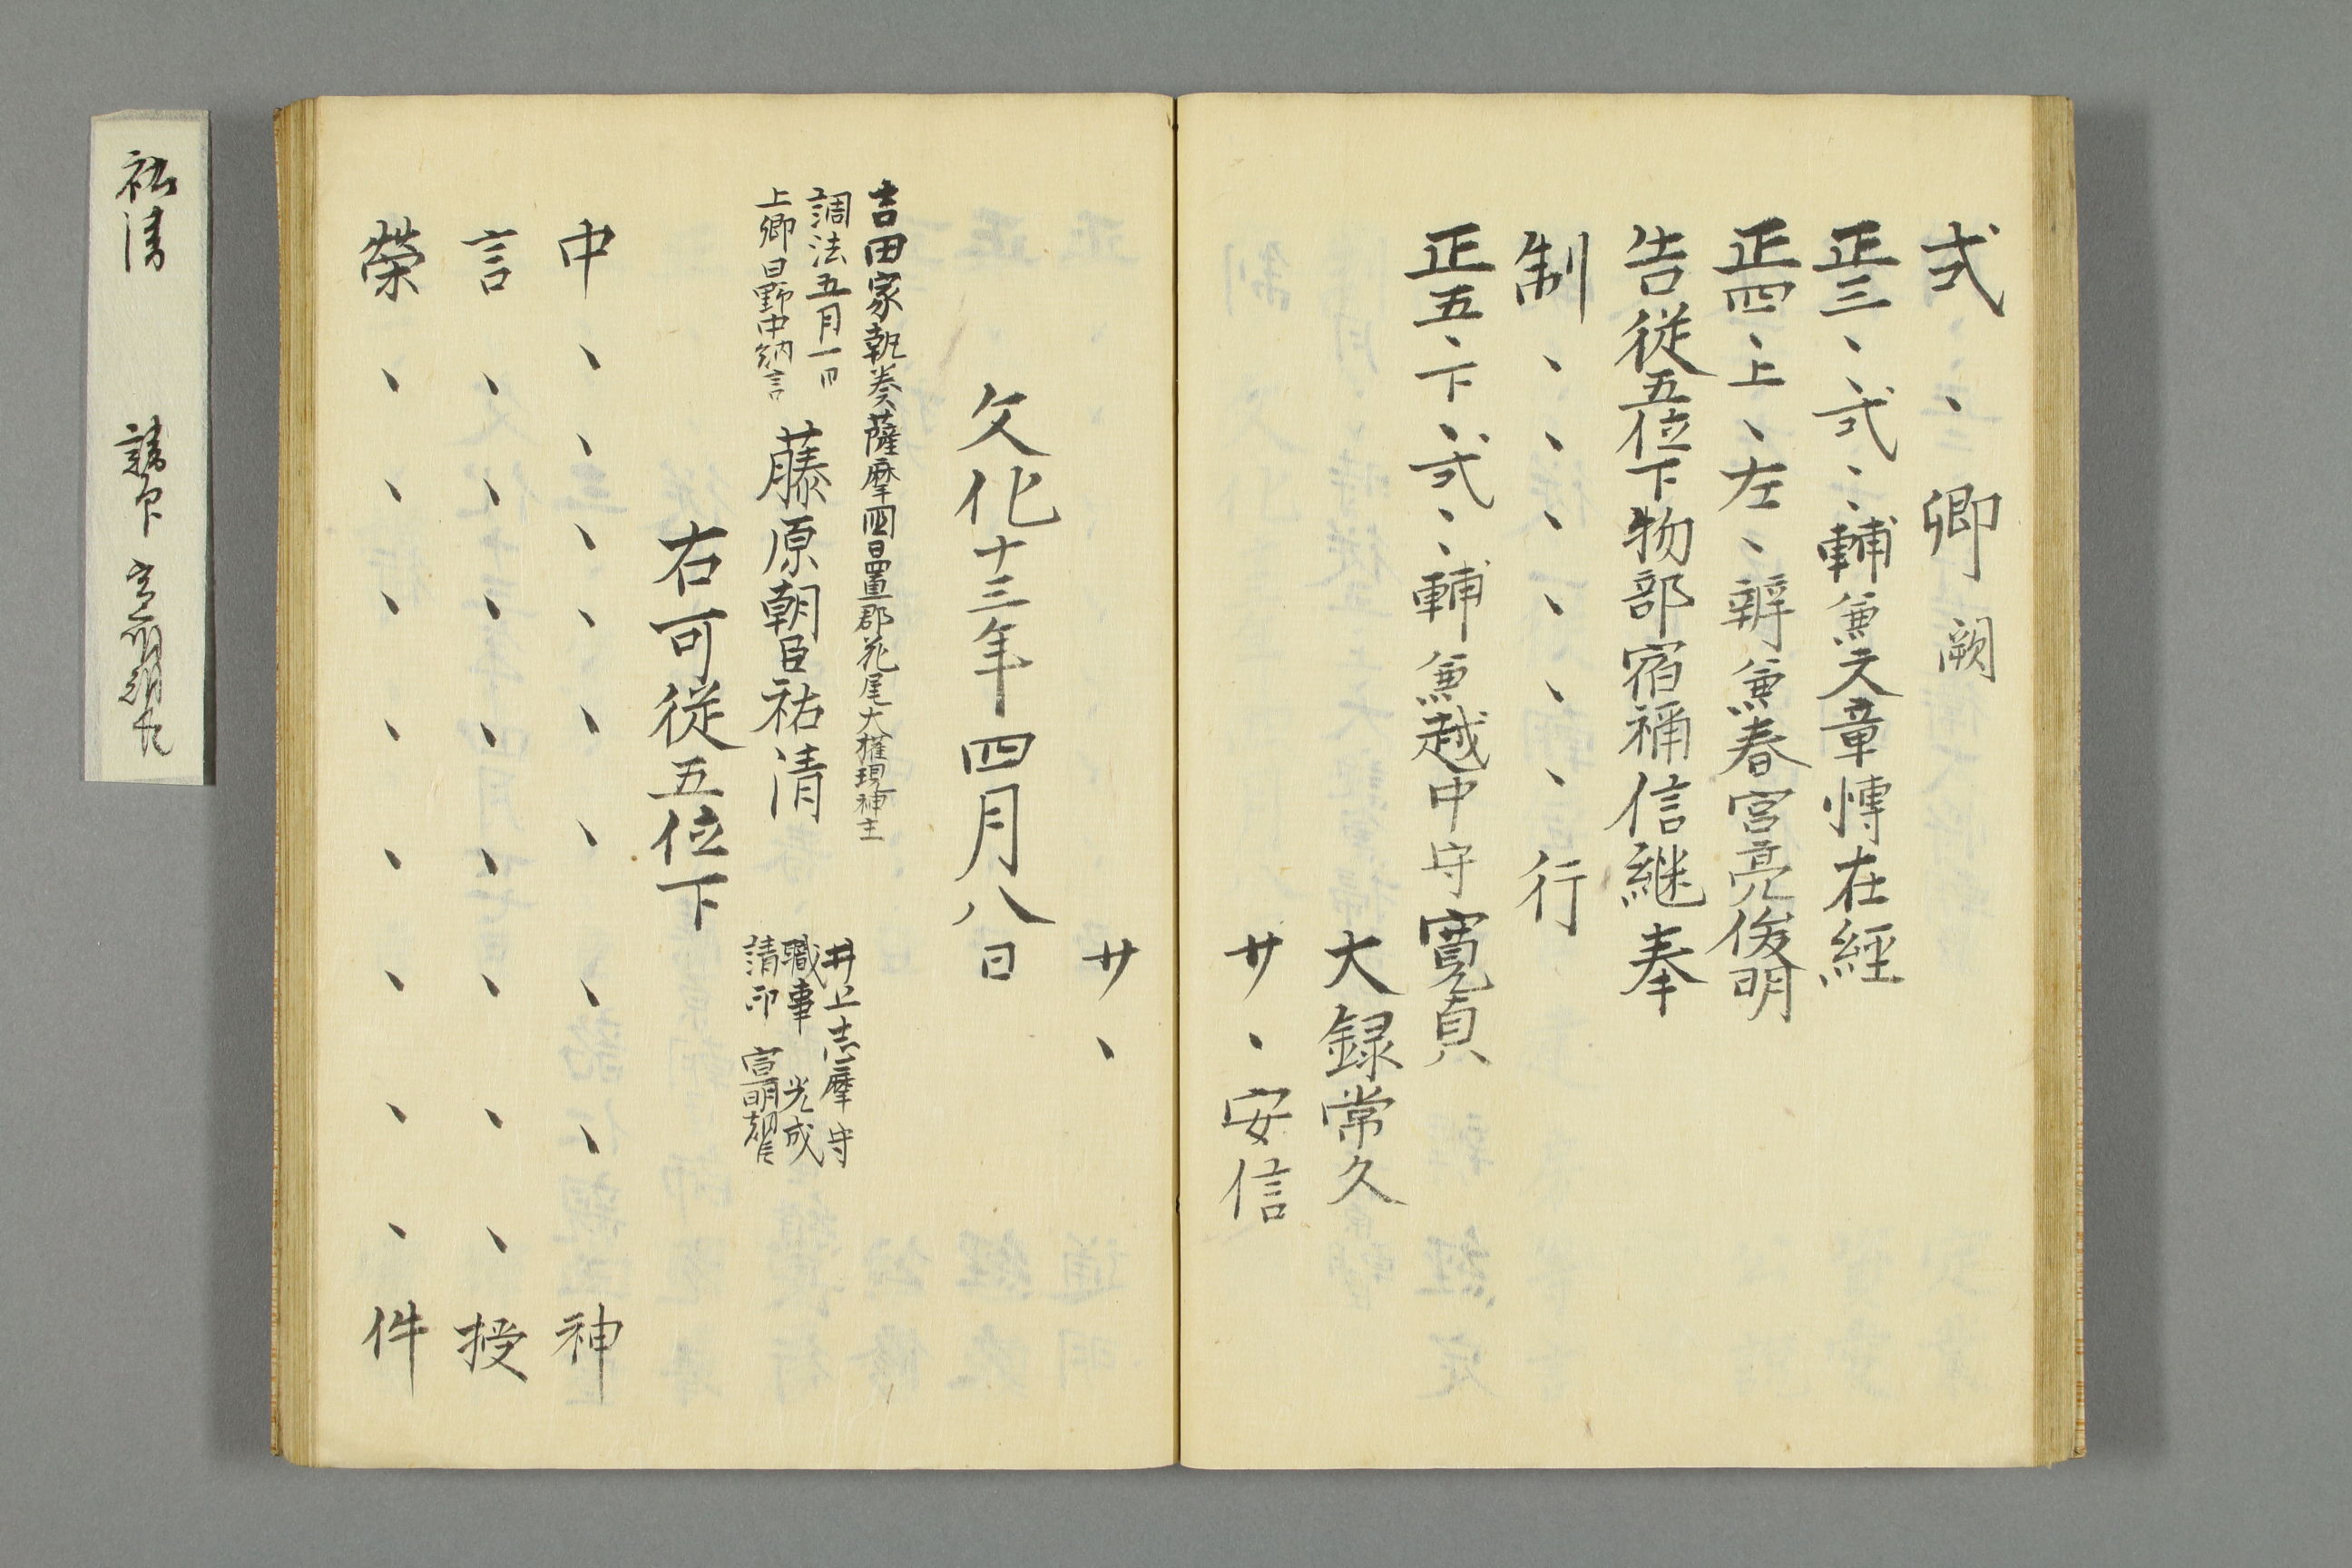 式、卿闕
正三、、式、、輔兼文章博在經
正四、上、左、辨兼春宮亮俊明
告従五位下物部宿祢信継奉
制、、、、、、行
正五、下、式、、輔兼越中守寛貞
大録常久
サ、安信
サ、
文化十三年四月八日
吉田家執奏薩摩四日置郡花尾大権現神主
調法五月一日
上卿日野中納言
藤原朝臣祐清
井上志摩守
職事 光成
請印
右可従五位下
中、、、、、、、、神
言、、、、、、、、授
榮、、、、、、、、件
祐清 請印